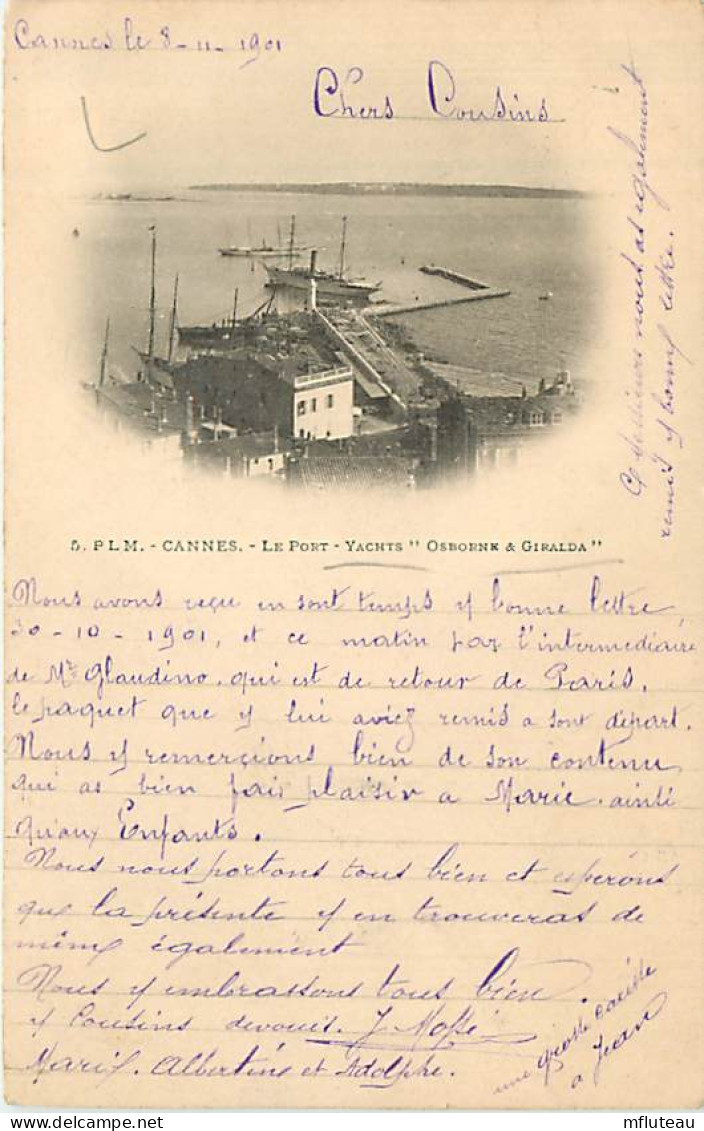 Cannes le 8-11-1901
Chers Cousins
Ce Messieurs nout as également
remis y bonne lettre.
5. PLM. - CANNES. - LE PORT - YACHTS " OSBORNE & GIRALDA "
Nous avons reçue en sont temps y bonne lettre
30-10-1901, et ce matin par l'intermediaire
de Mr Glaudino, qui est de retour de Paris.
le paquet que y lui aviez remis a sont départ.
Nous y remercions bien de son contenu
qui as bien fais plaisir a Marie. ainti
qu'aux Enfants.
Nous nous portons tous bien et esperons
que la présente y en trouveras de
même également
Nous y embrassons tous bien.
y Cousins devoués. J
Marie. Albertine et Adolphe.
une grosse
a Jean
mfluteau